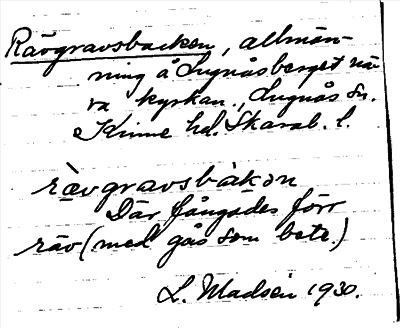 Rävgravsbacken, allmän-
ning å Lugnåsberget nä-
ra kyrkan, Lugnås sn.
Kinne hd. Skarab. l.
rävgravsbakən
Där fångades förr
räv (med gås som bete.)
L. Madsén 1930.